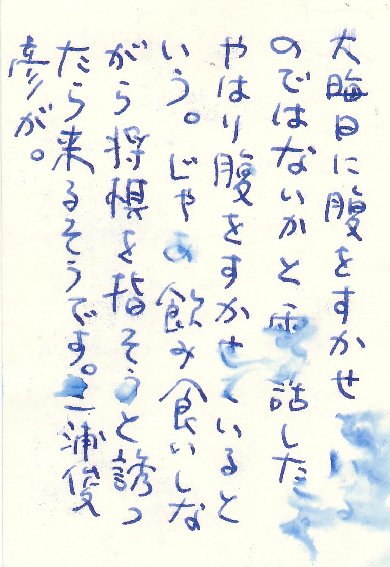 大晦日に腹をすかせ
のではないかと電話した
やはり腹をすかせていると
いう。じゃあ飲み食いしな
がら将棋を指そうと誘っ
たら来るそうです。三浦俊
彦が。